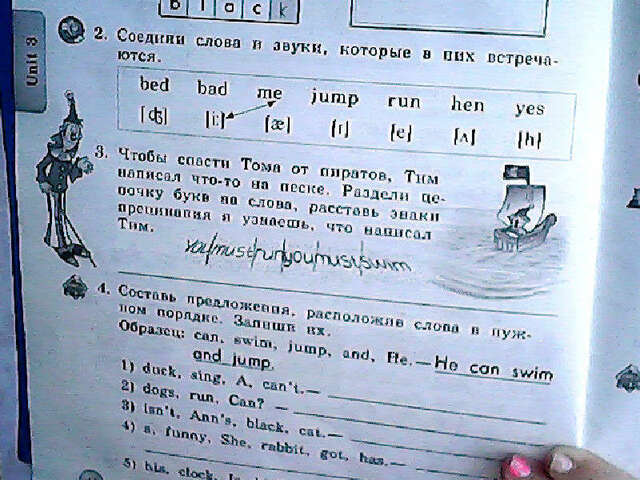 b l a c k
Unit 3
2. Соедини слова и звуки, которые в них встреча-
ются.
bed bad me jump run hen yes
[ʤ] [i:] [æ] [ɪ] [e] [ʌ] [h]
3. Чтобы спасти Тома от пиратов, Тим
написал что-то на песке. Раздели це-
почку букв на слова, расставь знаки
препинания и узнаешь, что написал
Тим.
you/must/run/you/must/swim
4. Составь предложения, расположив слова в нуж-
ном порядке. Запиши их.
Образец: can, swim, jump, and, He. — He can swim
and jump.
1) duck, sing, A, can't. —
2) dogs, run, Can? —
3) isn't, Ann's, black, cat. —
4) a, funny, She, rabbit, got, has. —
5) his, clock,